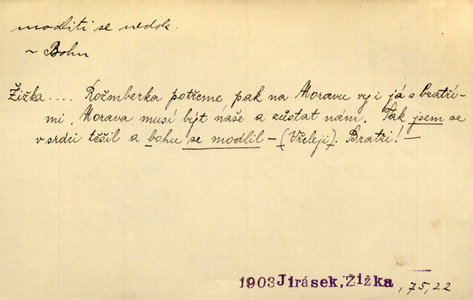 modliti se nedok.
~ Bohu
Žižka.... Rožmberka potřeme, pak na Moravu vy i já s bratří-
mi. Morava musí být naše a zůstat nám. Tak jsem se
v srdci těšil a bohu se modlil – (Vřeleji). Bratři! –
1903 Jirásek, Žižka, 75,22